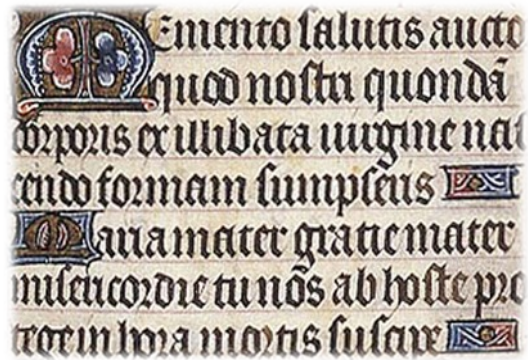 Memento salutis aucto
quod nostri quondā
corporis ex illibata uirgine naſ
cendo formam sumpseris
Maria mater gratie mater
misericordie tu nos ab hoste pro
tege in hora mortis suscipe